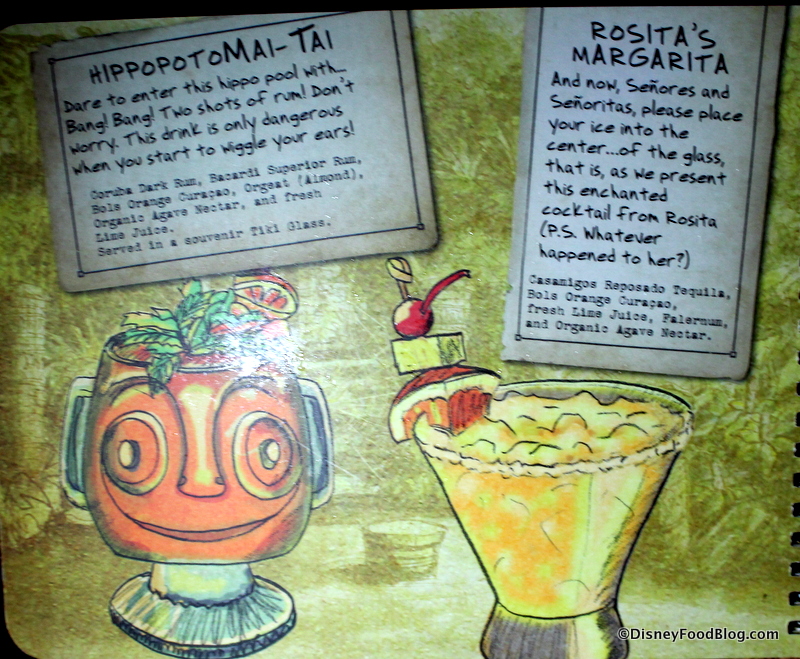 HIPPOPOTOMAI-TAI
Dare to enter this hippo pool with...
Bang! Bang! Two shots of rum! Don't
worry. This drink is only dangerous
when you start to wiggle your ears!
Coruba Dark Rum, Bacardi Superior Rum,
Bols Orange Curaçao, Orgeat (Almond),
Organic Agave Nectar, and fresh
Lime Juice.
Served in a souvenir Tiki Glass.
ROSITA'S
MARGARITA
And now, Señores and
Señoritas, please place
your ice into the
center...of the glass,
that is, as we present
this enchanted
cocktail from Rosita
(P.S. Whatever
happened to her?)
Casamigos Reposado Tequila,
Bols Orange Curaçao,
fresh Lime Juice, Falernum,
and Organic Agave Nectar.
©DisneyFoodBlog.com